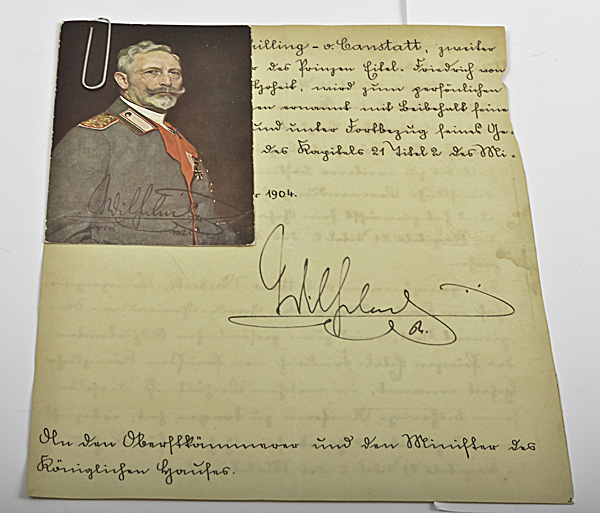 hilling - v. Canstatt, zweiter
r des Prinzen Eitel-Friedrich von
Hoheit, wird zum persönlichen
en ernannt mit Beibehalt seine
und unter Fortbezug seines Ge-
des Kapitels 21 Titel 2 des Mi-
Wilhelm
r 1904.
Wilhelm
R.
An den Oberstkämmerer und den Minister des
Königlichen Hauses.